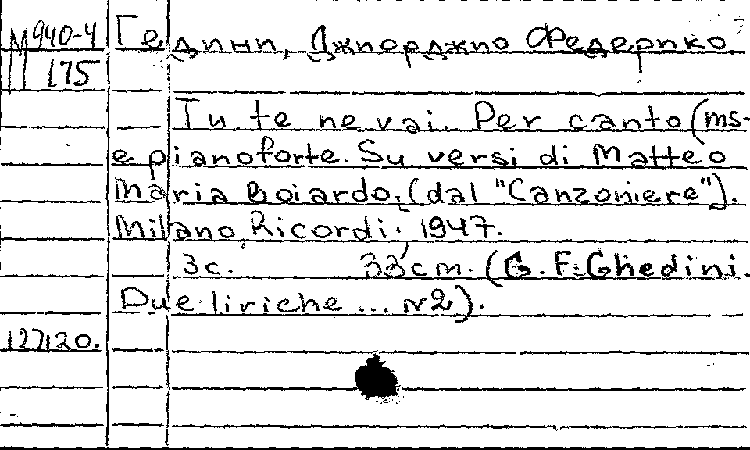 М 940-4 Гедини, Джиорджио Федерико.
175
Tu te ne vai. Per canto (ms-
e pianoforte. Su versi di Matteo
Maria Boiardo, (dal "Canzoniere").
Milano, Ricordi. 1947.
3 c. 33 cm. (G. F. Ghedini.
Due liriche ... N2).
127120.